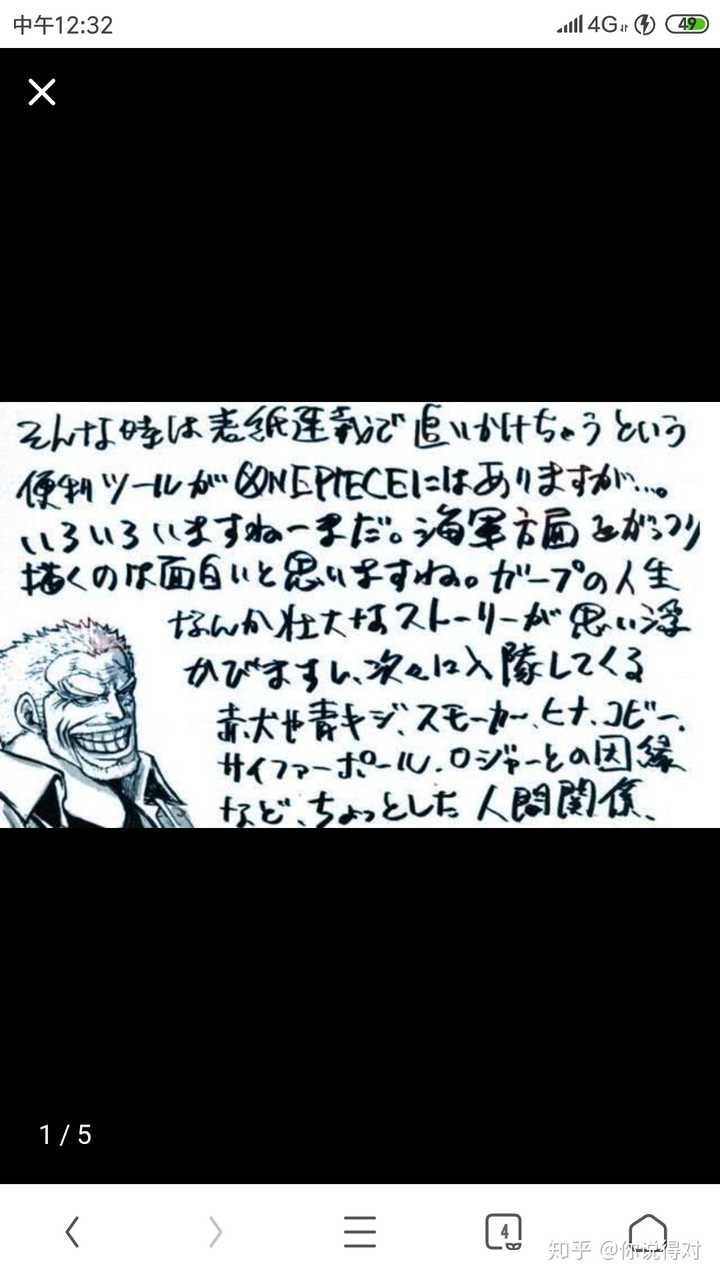 中午12:32
4G
49
そんな時は表紙連載で追いかけちゃうという
便利ツールが『ONE PIECE』にはありますが…。
いろいろいますねーまだ。海軍方面をがっつり
描くのは面白いと思いますね。ガープの人生
なんか壮大なストーリーが思い浮
かびますし、次々に入隊してくる
赤犬や青キジ、スモーカー、ヒナ、コビー、
サイファーポール、ロジャーとの因縁
など、ちょっとした人間関係、
1 / 5
4
知乎 @你说得对